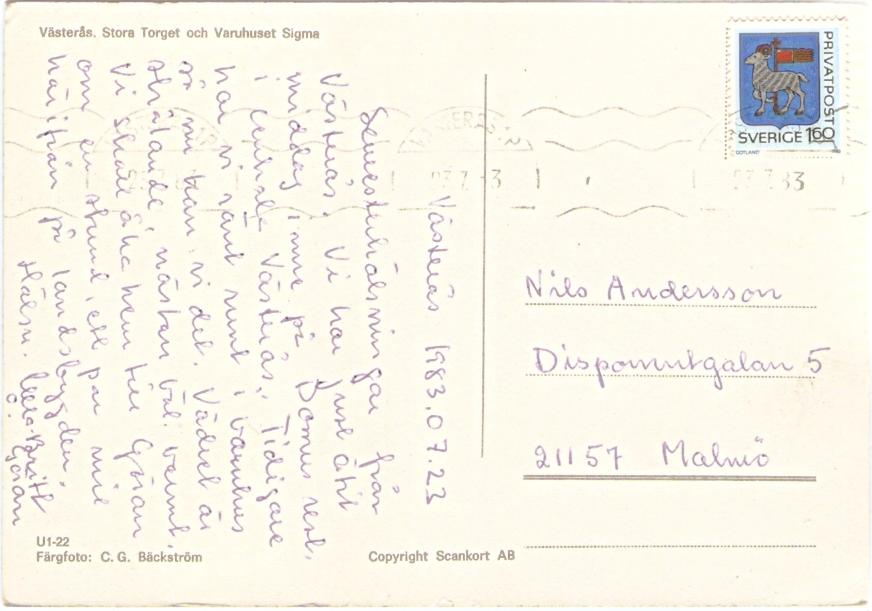 Västerås. Stora Torget och Varuhuset Sigma
PRIVATPOST
SVERIGE 160
GOTLAND
VÄSTERÅS 1
23.7.83
Västerås 1983.07.23
Semesterhälsningar från
Västerås. Vi har just ätit
middag inne på Domus rest.
i centrala Västerås. Tidigare
har vi varit runt i varuhus
så nu kan vi det. Vädret är
strålande, nästan väl varmt.
Vi skall åka hem till Göran
om en stund, ett par mil
härifrån på landsbygden.
Hälsn. Britt
o. Göran
Nils Andersson
Disponentgatan 5
21157 Malmö
U1-22
Färgfoto: C. G. Bäckström
Copyright Scankort AB